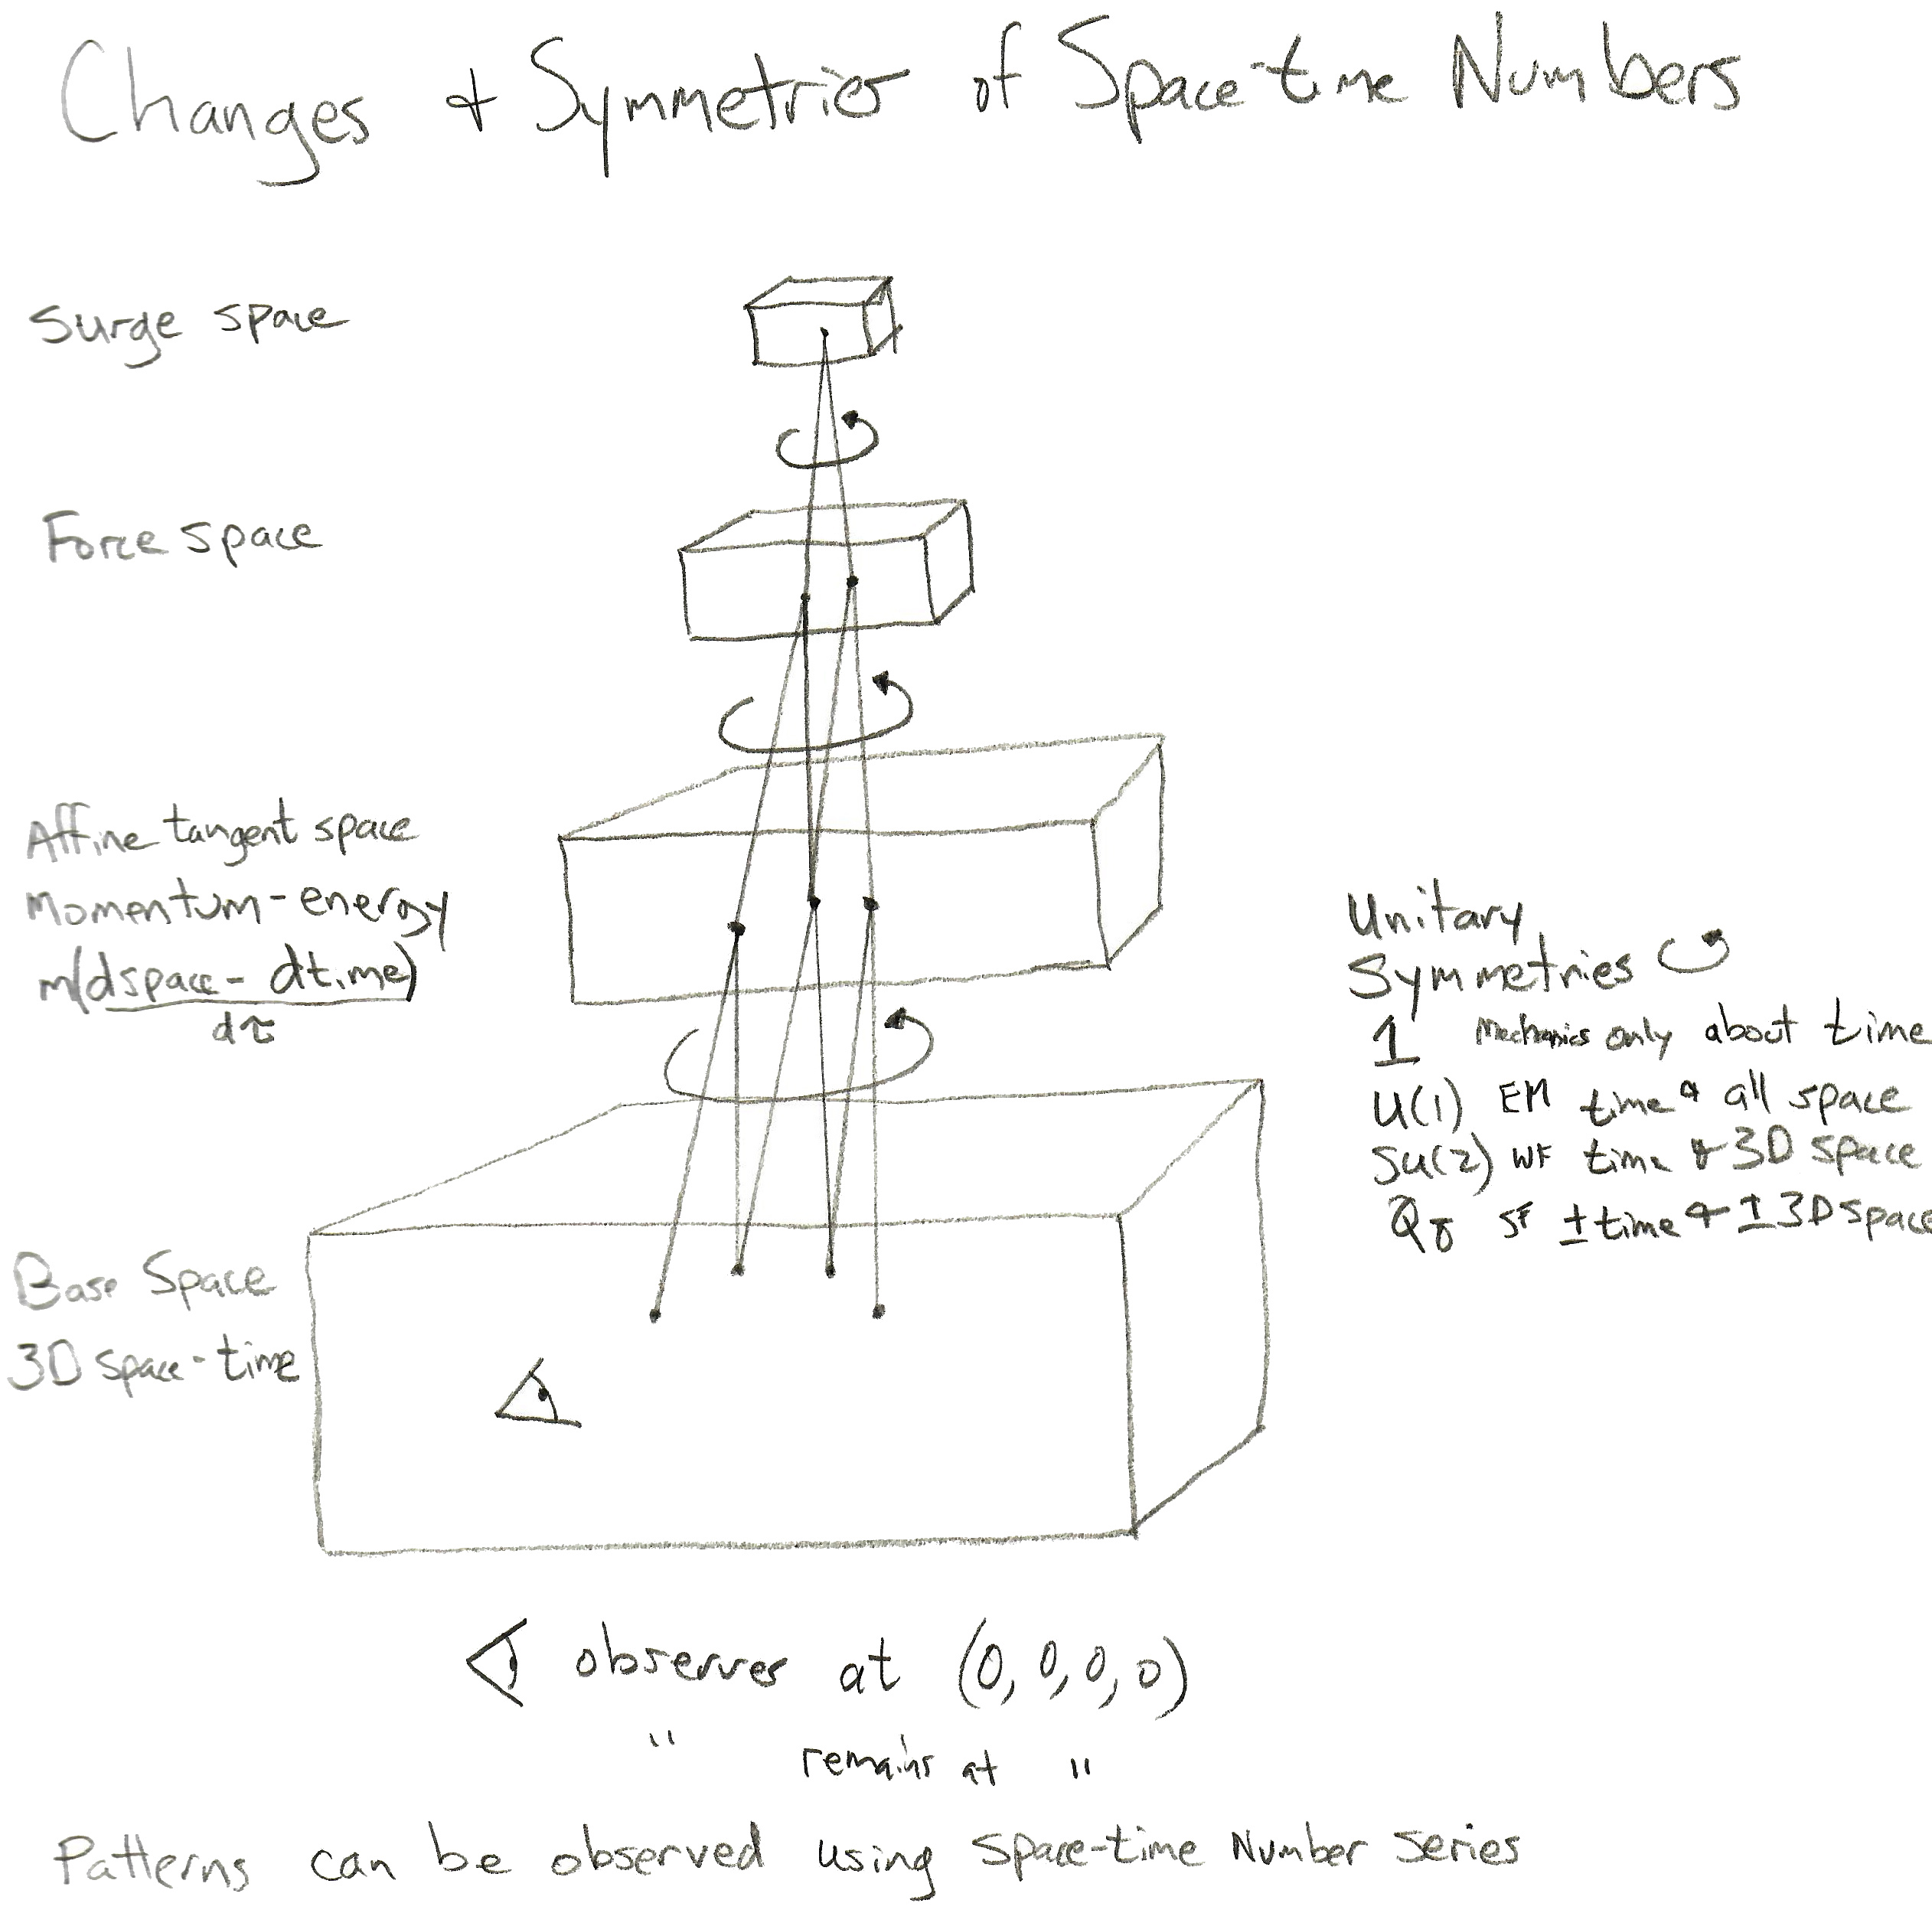 Changes + Symmetries of Space-time Numbers
Surge space
Force space
Affine tangent space
Momentum-energy
m(dspace - dtime)
dτ
Base Space
3D space-time
Unitary
Symmetries
1 Mechanics only about time
U(1) EM time + all space
SU(2) WF time + 3D space
Q8 SF ± time + ± 3D space
observer at (0, 0, 0, 0)
" remains at "
Patterns can be observed using space-time Number series